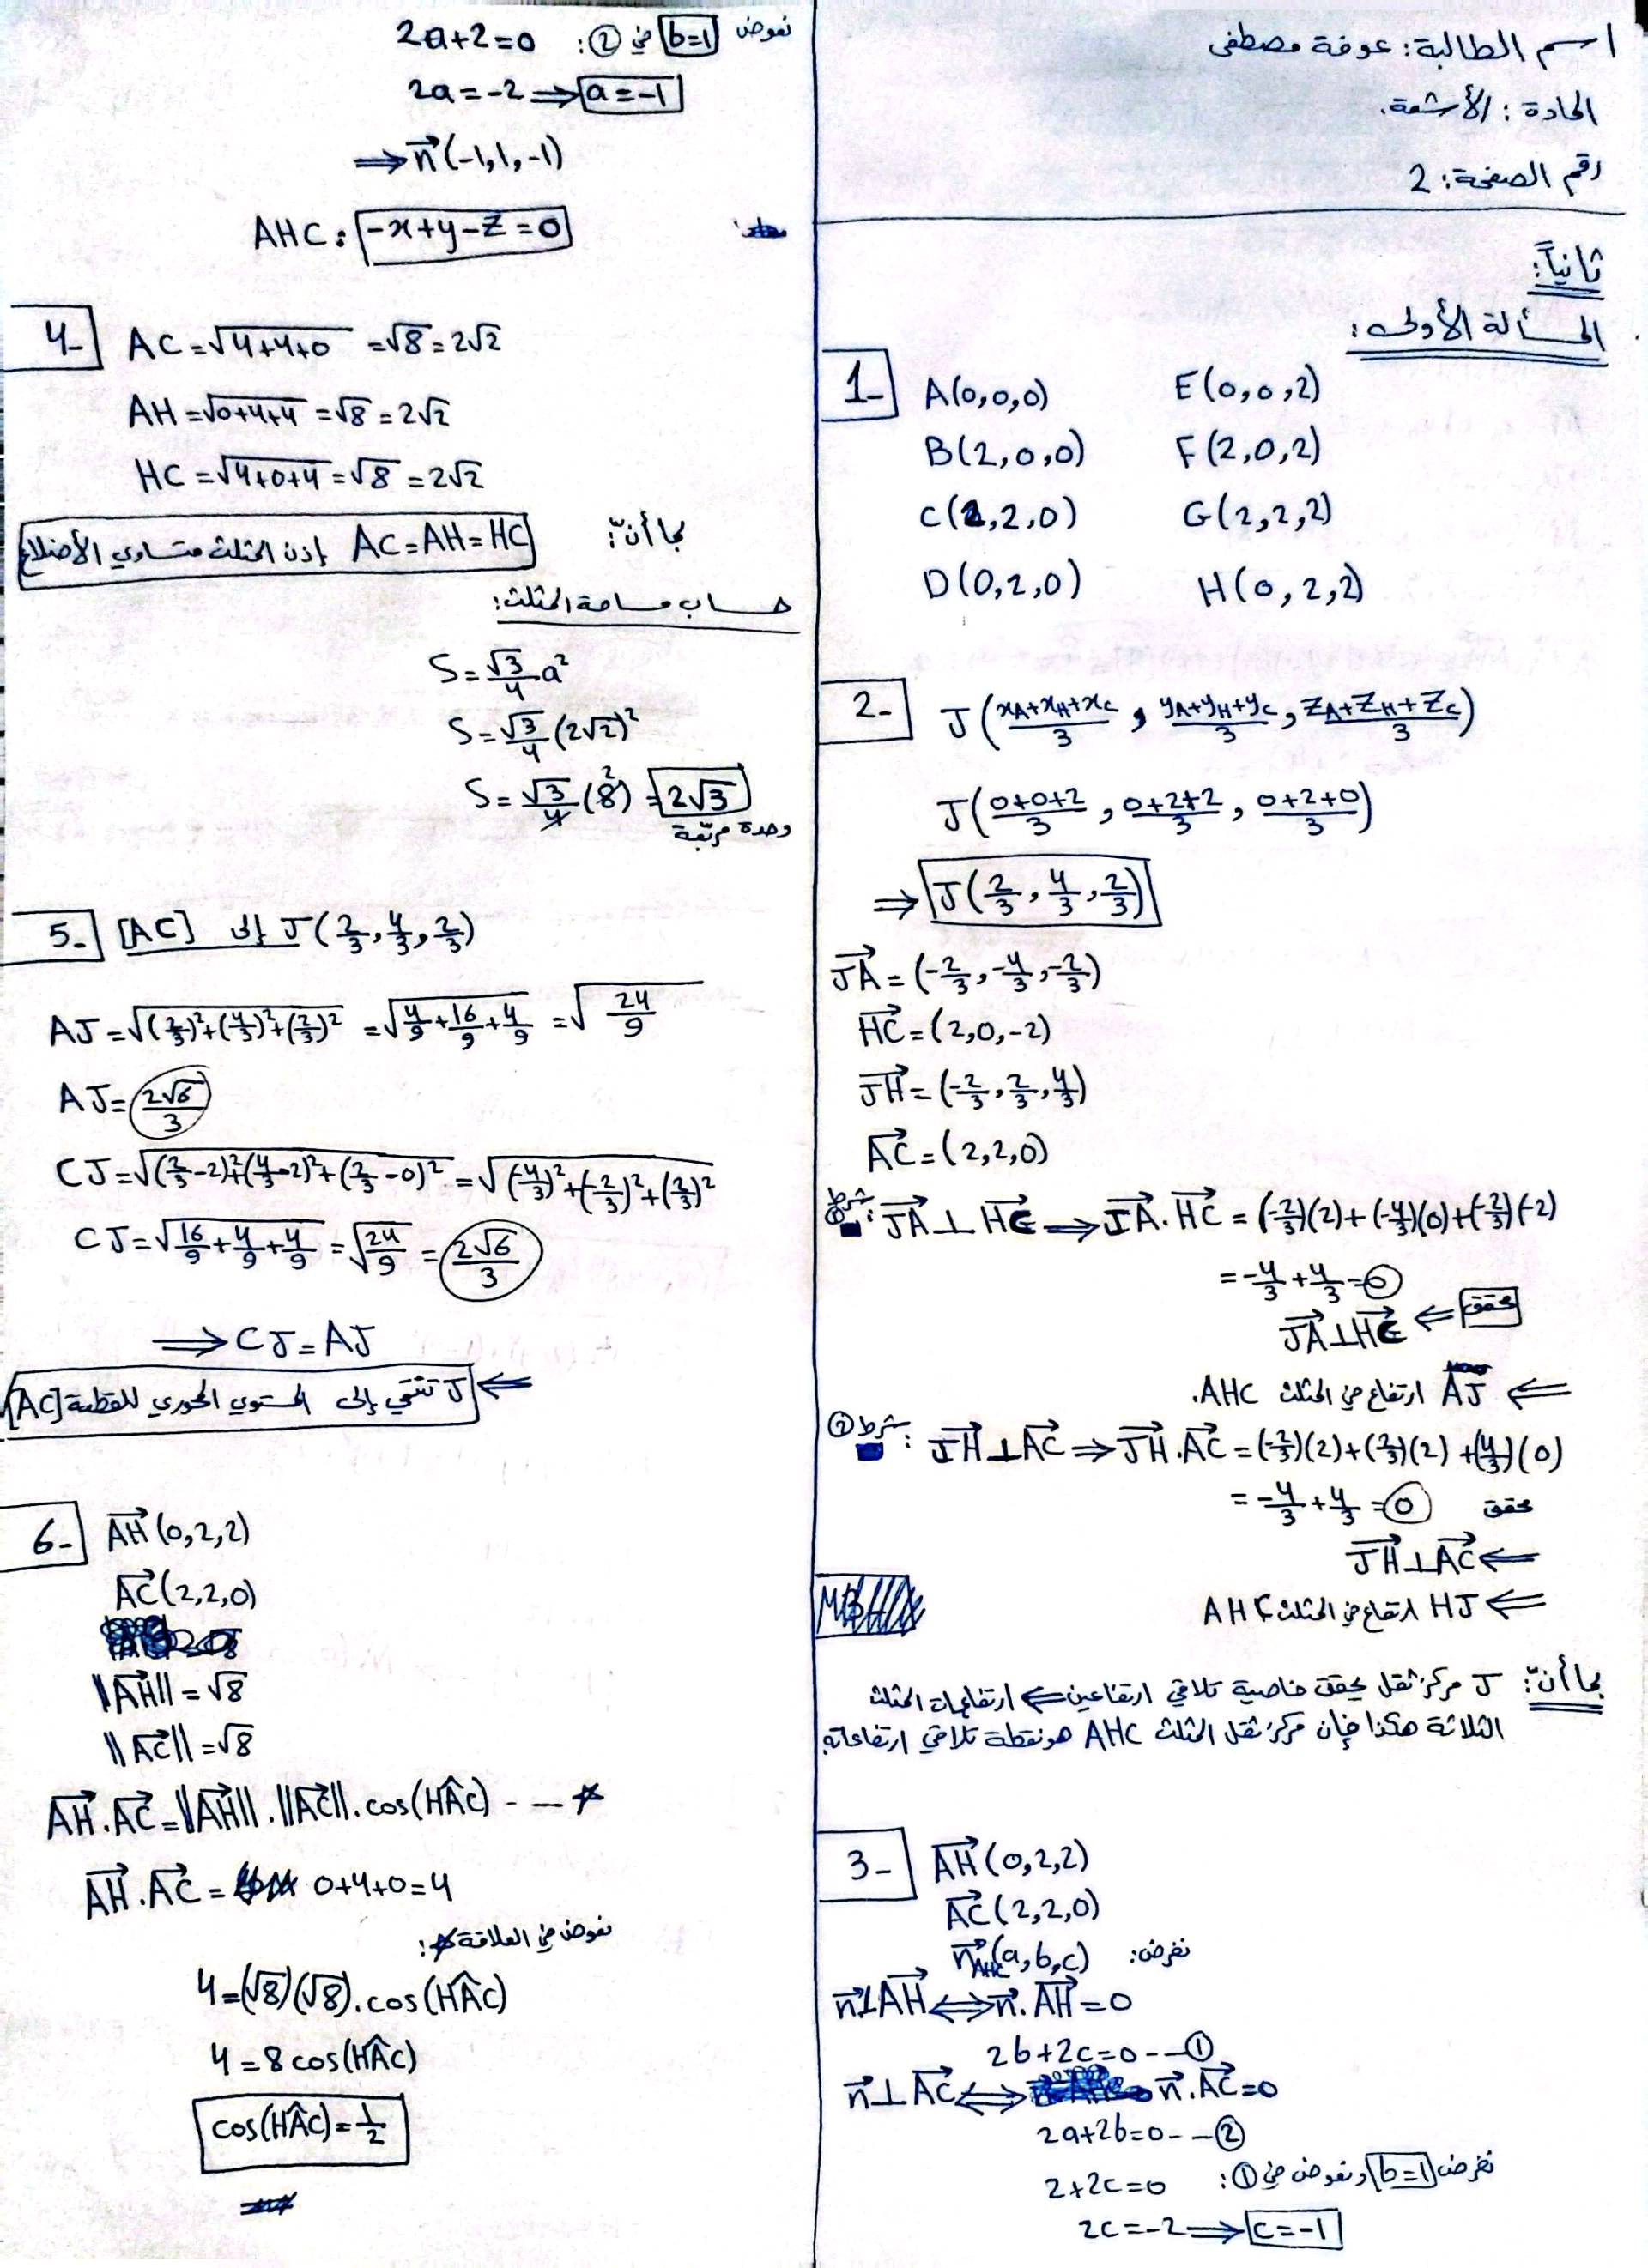 اسم الطالبة: عوفة مصطفى
المادة: الأشعة.
رقم الصفحة: 2
ثانياً:
المسألة الأولى:
1- A(0,0,0) E(0,0,2)
B(2,0,0) F(2,0,2)
C(2,2,0) G(2,2,2)
D(0,2,0) H(0,2,2)
2- J((x_A+x_H+x_C)/3 , (y_A+y_H+y_C)/3 , (z_A+z_H+z_C)/3)
J((0+0+2)/3 , (0+2+2)/3 , (0+2+0)/3)
⇒ J(2/3 , 4/3 , 2/3)
JA⃗ = (-2/3 , -4/3 , -2/3)
HC⃗ = (2,0,-2)
JH⃗ = (-2/3 , 2/3 , 4/3)
AC⃗ = (2,2,0)
شرط ①: JA⃗ ⊥ HC⃗ ⇒ JA⃗ . HC⃗ = (-2/3)(2)+(-4/3)(0)+(-2/3)(-2)
= -4/3 + 4/3 = 0
محقق ⇐ JA⃗ ⊥ HC⃗
⇐ AJ ارتفاع في المثلث AHC.
شرط ②: JH⃗ ⊥ AC⃗ ⇒ JH⃗ . AC⃗ = (-2/3)(2)+(2/3)(2)+(4/3)(0)
= -4/3 + 4/3 = 0 محقق
⇐ JH⃗ ⊥ AC⃗
⇐ HJ ارتفاع في المثلث AHC
بما أنّ: J مركز ثقل يحقق خاصية تلاقي ارتفاعين ⇐ ارتفاعات المثلث
الثلاثة هكذا فإن مركز ثقل المثلث AHC هو نقطة تلاقي ارتفاعاته
3- AH⃗(0,2,2)
AC⃗(2,2,0)
نفرض: n⃗_AHC(a,b,c)
n⃗ ⊥ AH⃗ ⇔ n⃗ . AH⃗ = 0
2b+2c=0 -- ①
n⃗ ⊥ AC⃗ ⇔ n⃗ . AC⃗ = 0
2a+2b=0 -- ②
نفرض b=1 ونعوض في ①: 2+2c=0
2c=-2 ⇒ c=-1
نعوض b=1 في ②: 2a+2=0
2a=-2 ⇒ a=-1
⇒ n⃗(-1,1,-1)
AHC: -x+y-z=0
4- AC=√(4+4+0) =√8 = 2√2
AH=√(0+4+4) =√8 = 2√2
HC=√(4+0+4) =√8 = 2√2
بما أنّ: AC=AH=HC إذن المثلث متساوي الأضلاع
حساب مساحة المثلث:
S=√3/4 a²
S=√3/4 (2√2)²
S=√3/4 (8) = 2√3
وحدة مربّعة
5- J(2/3 , 4/3 , 2/3) إلى [AC]
AJ=√((2/3)²+(4/3)²+(2/3)²) =√(4/9+16/9+4/9) =√(24/9)
AJ= 2√6/3
CJ=√((2/3-2)²+(4/3-2)²+(2/3-0)²) =√((-4/3)²+(-2/3)²+(2/3)²)
CJ=√(16/9+4/9+4/9) =√(24/9) = 2√6/3
⇒ CJ=AJ
⇐ J تنتمي إلى المستوي المحوري للقطعة [AC]
6- AH⃗(0,2,2)
AC⃗(2,2,0)
||AH⃗|| = √8
||AC⃗|| = √8
AH⃗ . AC⃗ = ||AH⃗|| . ||AC⃗|| . cos(HÂC) -- *
AH⃗ . AC⃗ = 0+4+0=4
نعوض في العلاقة *:
4=(√8)(√8).cos(HÂC)
4=8 cos(HÂC)
cos(HÂC)=1/2